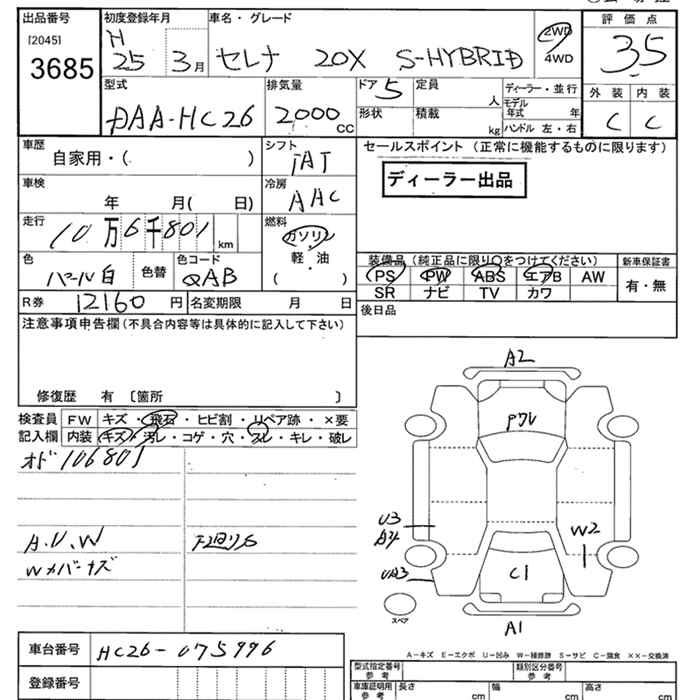 出品番号 初度登録年月 車名・グレード 評価点
[2045] H
3685 25 3月 セレナ 20X S-HYBRID 2WD 3.5
4WD
型式 排気量 ドア 5 定員 人 ディーラー・並行 外装 内装
DAA-HC26 2000 CC 形状 積載 kg モデル年式 年 C C
ハンドル 左・右
車歴 シフト セールスポイント (正常に機能するものに限ります)
自家用・( ) IAT
ディーラー出品
車検 冷房
年 月( 日) AAC
走行 燃料
10万6千801 km ガソリン
軽・油
( )
色 色替 色コード 装備品 (純正品に限り○をつけてください) 新車保証書
パール白 QAB PS PW ABS エアB AW 有・無
SR ナビ TV カワ
R券 12160 円 名変期限 月 日 後日品
注意事項申告欄 (不具合内容等は具体的に記入して下さい)
修復歴 有 〔箇所 〕
検査員 FW キズ・飛石・ヒビ割・リペア跡・×要
記入欄 内装 キズ・汚レ・コゲ・穴・スレ・キレ・破レ
オド106801
A.U.W 下廻りS
Wメバーナズ
A2
Pクレ
U3
A4
W2
UA3
C1
スペア
A1
車台番号 HC26-075996
A-キズ E-エクボ U-凹み W-補修跡 S-サビ C-腐食 ××-交換済
登録番号 型式指定番号 参考 類別区分番号 参考
車庫証明用 参考 長さ cm 幅 cm 高さ cm